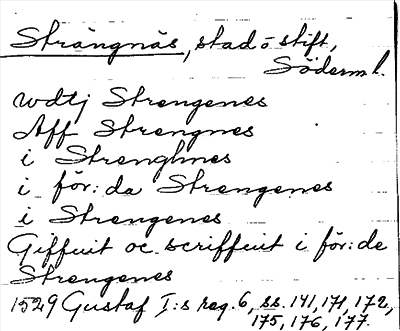 Strängnäs, stad o stift,
Söderml.
wdtj Strengenes
Aff Strengnes
i Strenghnes
i för:da Strengenes
i Strengenes
Giffuit oc scriffuit i för:de
Strengenes
1529 Gustaf I:s reg. 6, ss. 141, 171, 172,
175, 176, 177.